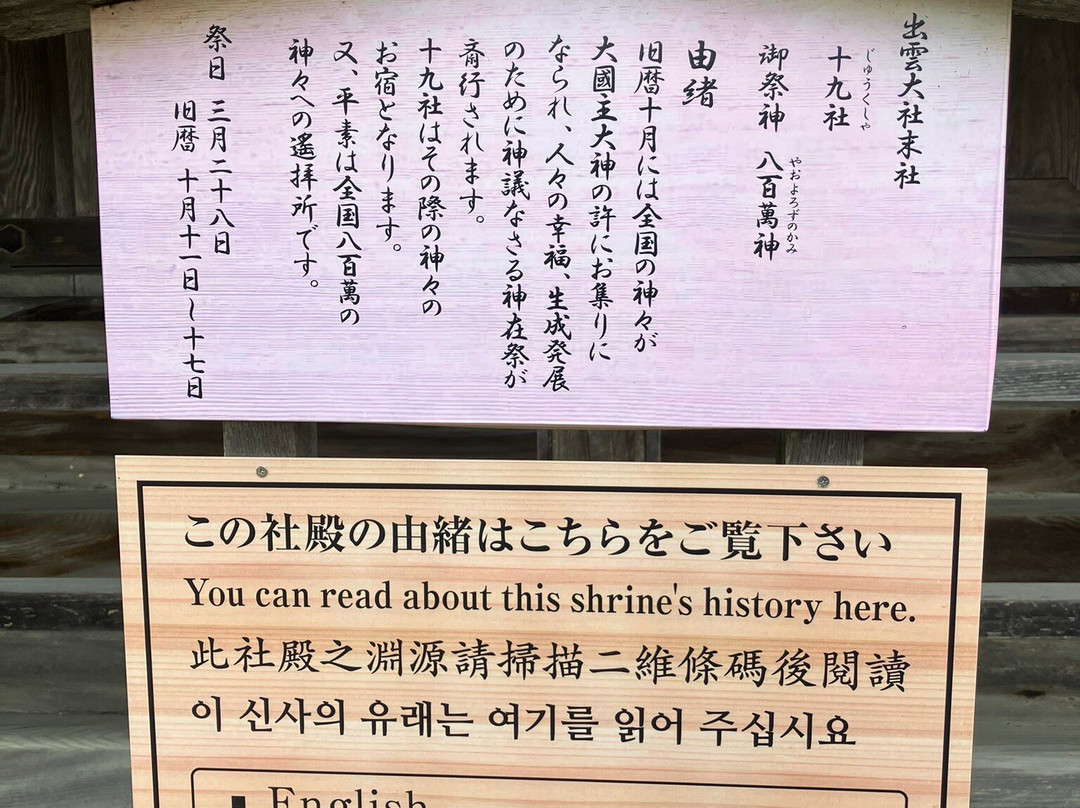 出雲大社末社
じゅうくしゃ
十九社
御祭神 八百萬神
やおよろずのかみ
由緒
旧暦十月には全国の神々が
大國主大神の許にお集りに
なられ、人々の幸福、生成発展
のために神議なさる神在祭が
斎行されます。
十九社はその際の神々の
お宿となります。
又、平素は全国八百萬の
神々への遙拝所です。
祭日 三月二十八日
旧暦 十月十一日～十七日
この社殿の由緒はこちらをご覧下さい
You can read about this shrine's history here.
此社殿之淵源請掃描二維條碼後閱讀
이 신사의 유래는 여기를 읽어 주십시요
■ English